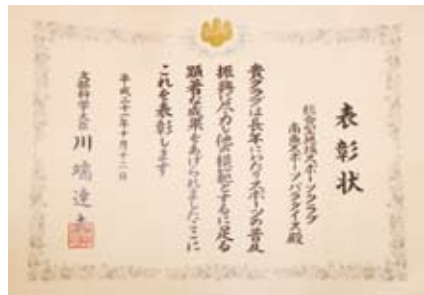 表彰状
総合型地域スポーツクラブ
南西スポーツパラダイス殿
貴クラブは長年にわたりスポーツの普及
振興に尽力し他の模範とするに足る
顕著な成果をあげられましたここに
これを表彰します
平成二十一年十月十二日
文部科学大臣 川端達夫